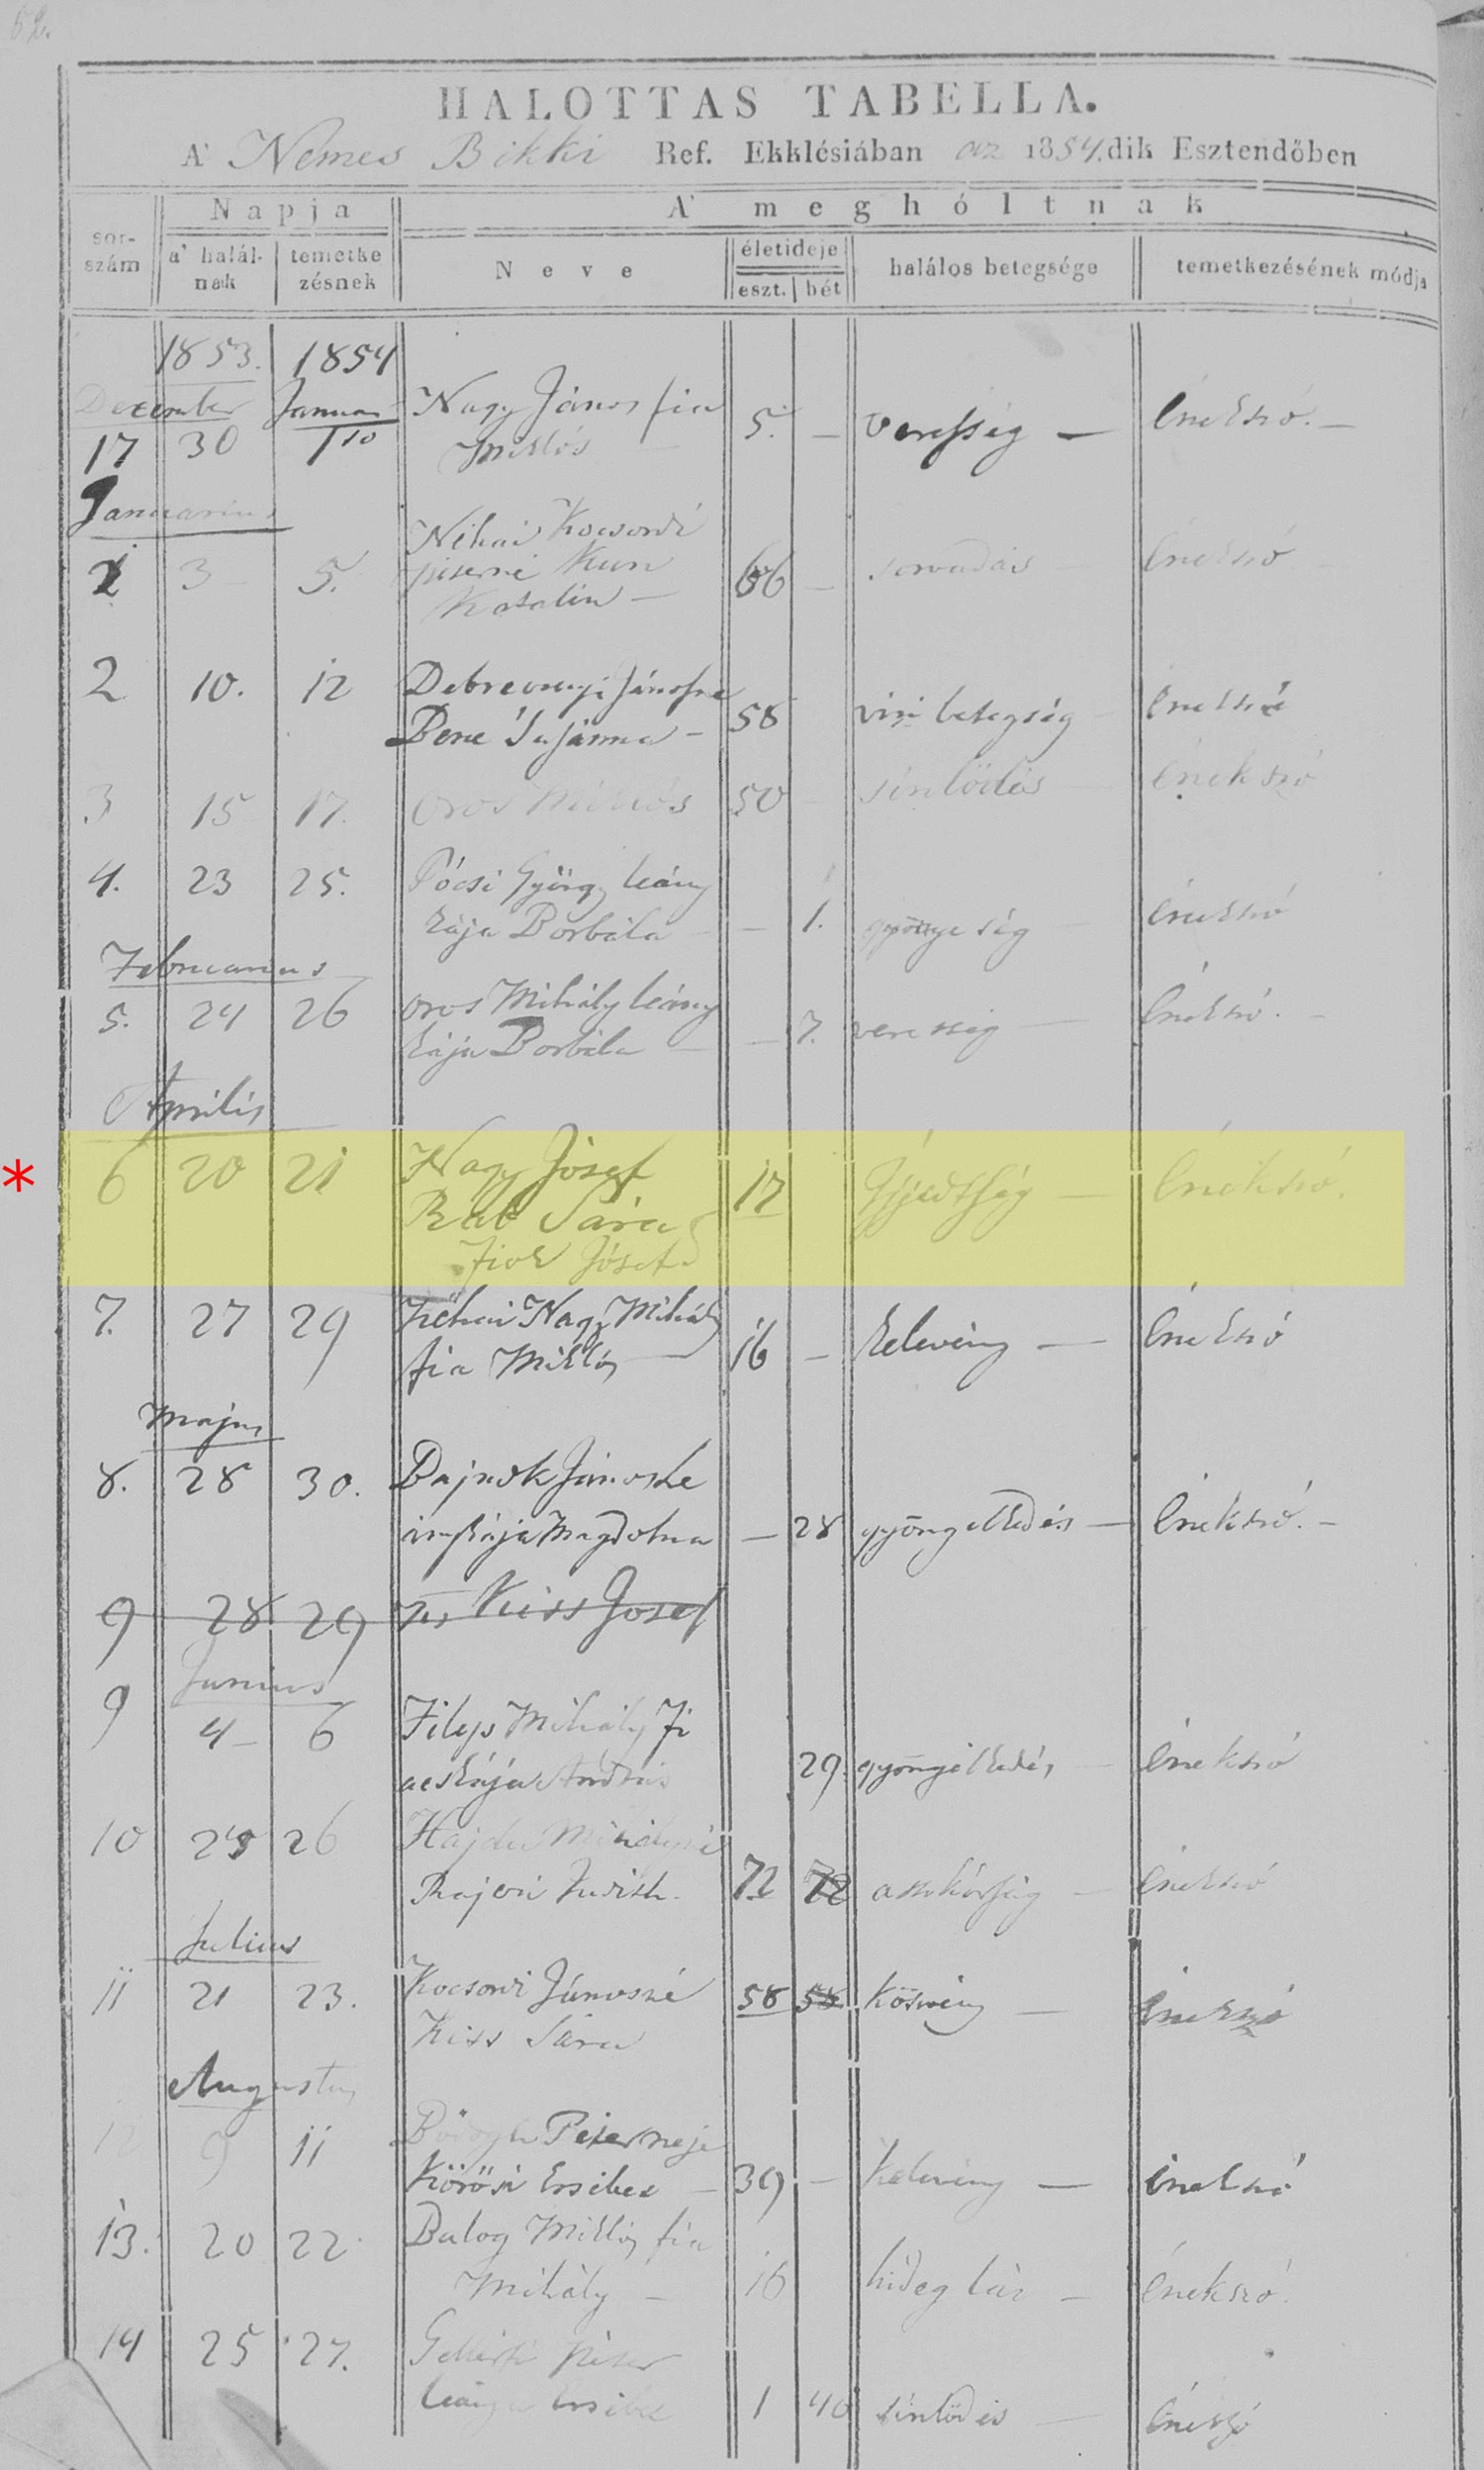 52.
HALOTTAS TABELLA.
A' Nemes Bikki Ref. Ekklésiában az 1854.dik Esztendőben
sor-szám
Napja
a' halál-nak
temetke zésnek
A' meghóltnak
Neve
életideje
eszt. hét
halálos betegsége
temetkezésének módja
1853. 1854
December Januar
Nagy János fia
17 30 1ső Miklós — 5. — veresség — énekszó. —
Januarius
Néhai Kocsordi
1 3 5. Kun 66 — sorvadás énekszó
Katalin —
2 10. 12 Debreczenyi Jánosne
Bene Susánna — 58 vizi betegség énekszó
3 15 17. Oros Miklós 50 sinlődés énekszó
4. 23 25. Pócsi György leány
kája Borbála — 1. gyöngeség énekszó
Februarius
5. 24 26 Oros Mihály leány
kája Borbála — 7. veresség — énekszó. —
Aprilis
6 20 21 Nagy Jósef
Rab Sára 17 — énekszó.
fiok Jósef
7. 27 29 Néhai Nagy Mihály
fia Miklós — 16 — kelevény — énekszó
Május
8. 28 30. Bajnok János le
ánykája Magdolna — 28 gyöngélkedés — énekszó. —
9 28 29 Kiss Josef
Junius
9 4 6 Filep Mihály fi
acskája András 29. gyöngélkedés énekszó
10 25 26 Hajdu Mihályné
Judith. 72 72 aszkórság — énekszó
Julius
11 21 23. Kocsordi Jánosné 58 58 köszvény — énekszó
Kiss Sára
Augustus
12 9 11 Péter neje
Körösi Ersébet — 39 — kelevény — énekszó
13. 20 22. Balog Miklós fia
Mihály — 16 hideg láz — énekszó.
14 25 27. Péter
leánya Ersébet 1 40 sinlődés — énekszó